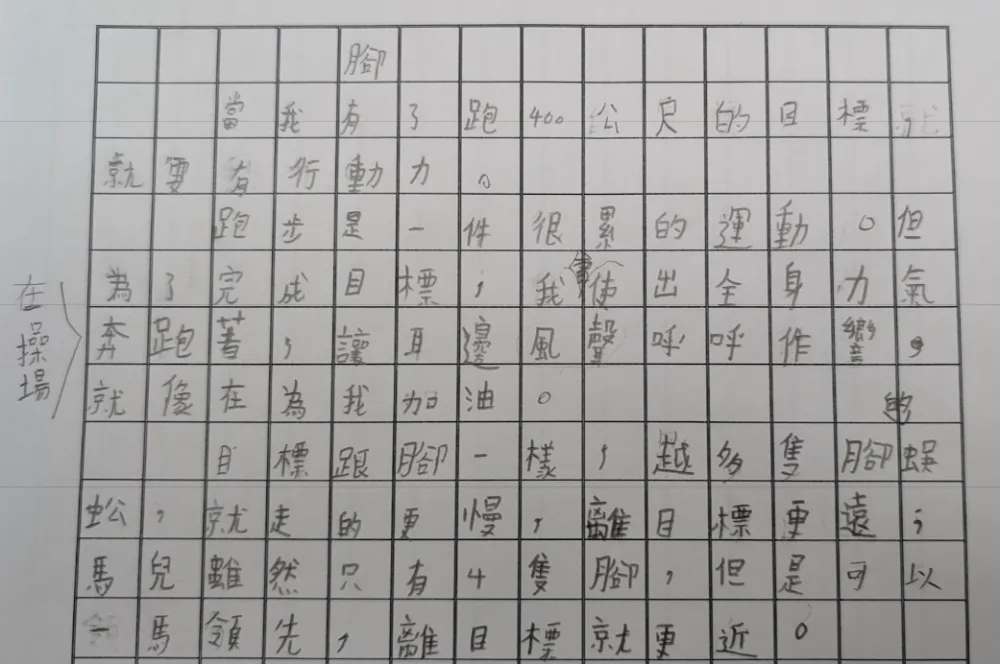 腳
當我有了跑400公尺的目標,
就要有行動力。
跑步是一件很累的運動。但
為了完成目標,我會使出全身力氣
奔跑著,讓耳邊風聲呼呼作響,
就像在為我加油。
目標跟腳一樣,越多隻腳的蜈
蚣,就走的更慢,離目標更遠;
馬兒雖然只有4隻腳,但是可以
一馬領先,離目標就更近。
在操場